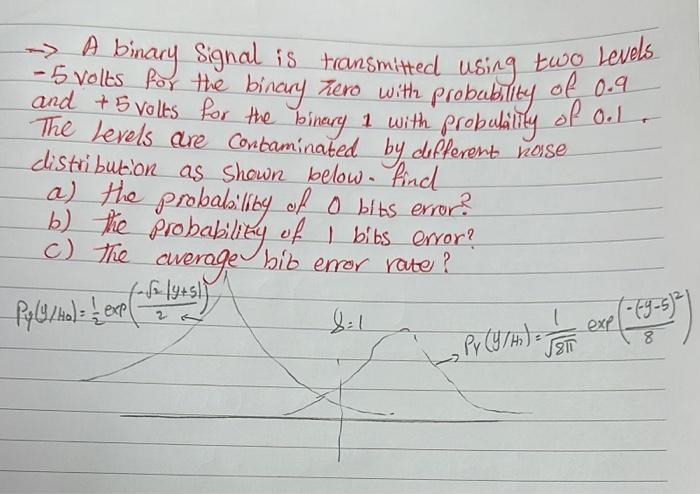 -> A binary Signal is transmitted using two Levels
-5 volts for the binary zero with probability of 0.9
and +5 volts for the binary 1 with probability of 0.1.
The Levels are Contaminated by different noise
distribution as shown below. find
a) the probability of 0 bits error?
b) the probability of 1 bits error?
c) The average bib error rate?
Py(y/H0) = 1/2 exp(-√2 |y+5| / 2)
γ=1
PY(y/H1) = 1/√8π exp(-(-y-5)² / 8)